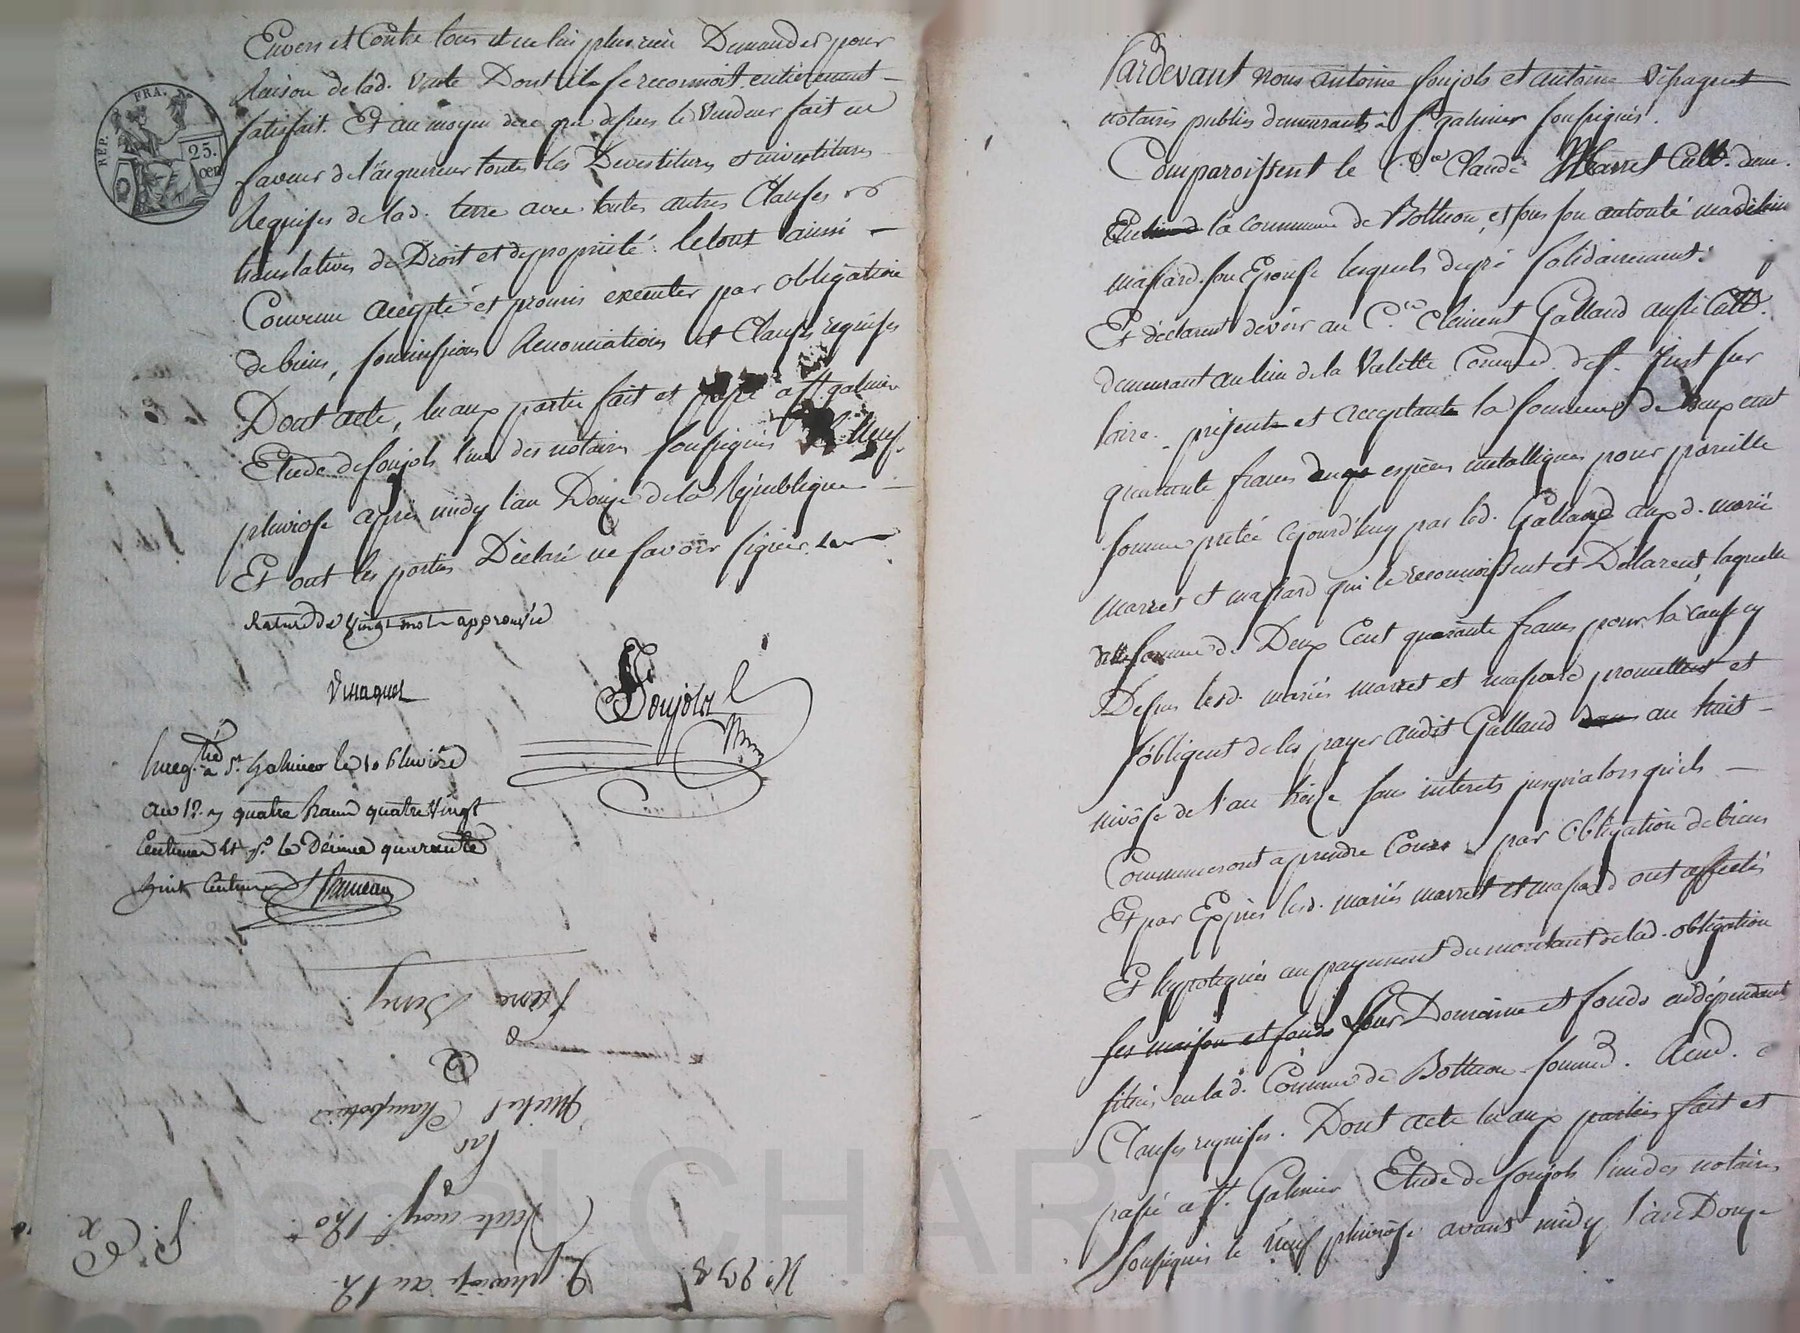 Envers et Contre tous et ne lui plus rien Demander pour
Raison de lad. vente Dont il se reconnoit entierement
satisfait. Et au moyen de ce que dessus le Vendeur fait en
faveur de l'acquereur toutes les Devestitures et investitures
Requises de lad. terre avec toutes autres Clauses
translatives de Droit et de propriété. le tout ainsi
Convenu accepté et promis executer par obligation
de biens, soumissions Renonciations et Clauses requises
Dont acte, lu aux parties fait et passé a St. galmier
Etude de Soujols l'un des notaires soussignés le Neuf
pluviose après midy l'an Douze de la République
Et ont les parties Déclaré ne savoir signer
Rature de vingt mots approuvée
Visaguet
Soujols
Enregtré a St. Galmier le 10 Pluviose
an 12. quatre francs quatre vingt
Centimes et pr. le Décime quarante
huit Centimes
REP. FRA.
25. cen
Pierre
a
Michel
Par
Vente moyt. 180
9 pluviose an 12.
N°. 233
Pardevant nous antoine Soujols et antoine Visaguet
notaires publics demeurants a St. galmier soussignés.
Comparoissent le C.en Claude Marret Catt. dem.
la commune de Botheon, et sous son autorité madelaine
massard son Epouse lesquels de gré solidairement
Et déclarent devoir au C.en Clément Galland aussi Catt.
demeurant au lieu de la Valette Commune de St. Just sur
loire. présent et acceptant la somme de Deux cent
quarante francs en especes métalliques pour pareille
somme pretée cejourd'huy par led. Galland auxd. mariés
marret et massard qui le reconnoissent et Déclarent, laquelle
somme de Deux Cent quarante francs pour la cause cy
Dessus lesd. mariés marret et massard promettent et
s'obligent de les payer audit Galland au huit
nivôse de l'an treize sans interets jusqu'alors qu'ils
Commenceront a prendre Cours par obligation de biens
Et par Exprès lesd. mariés marret et massard ont affectés
Et hypotequés au payement du montant de lad. obligation
ses maison et fonds leur Domaine et fonds en dépendant
situés en lad. Commune de Botheon. soumis. Renon. &
Clauses requises. Dont acte lu aux parties fait et
passé a St. Galmier Etude de Soujols l'un des notaires
soussignés le Neuf pluviôse avant midy l'an Douze